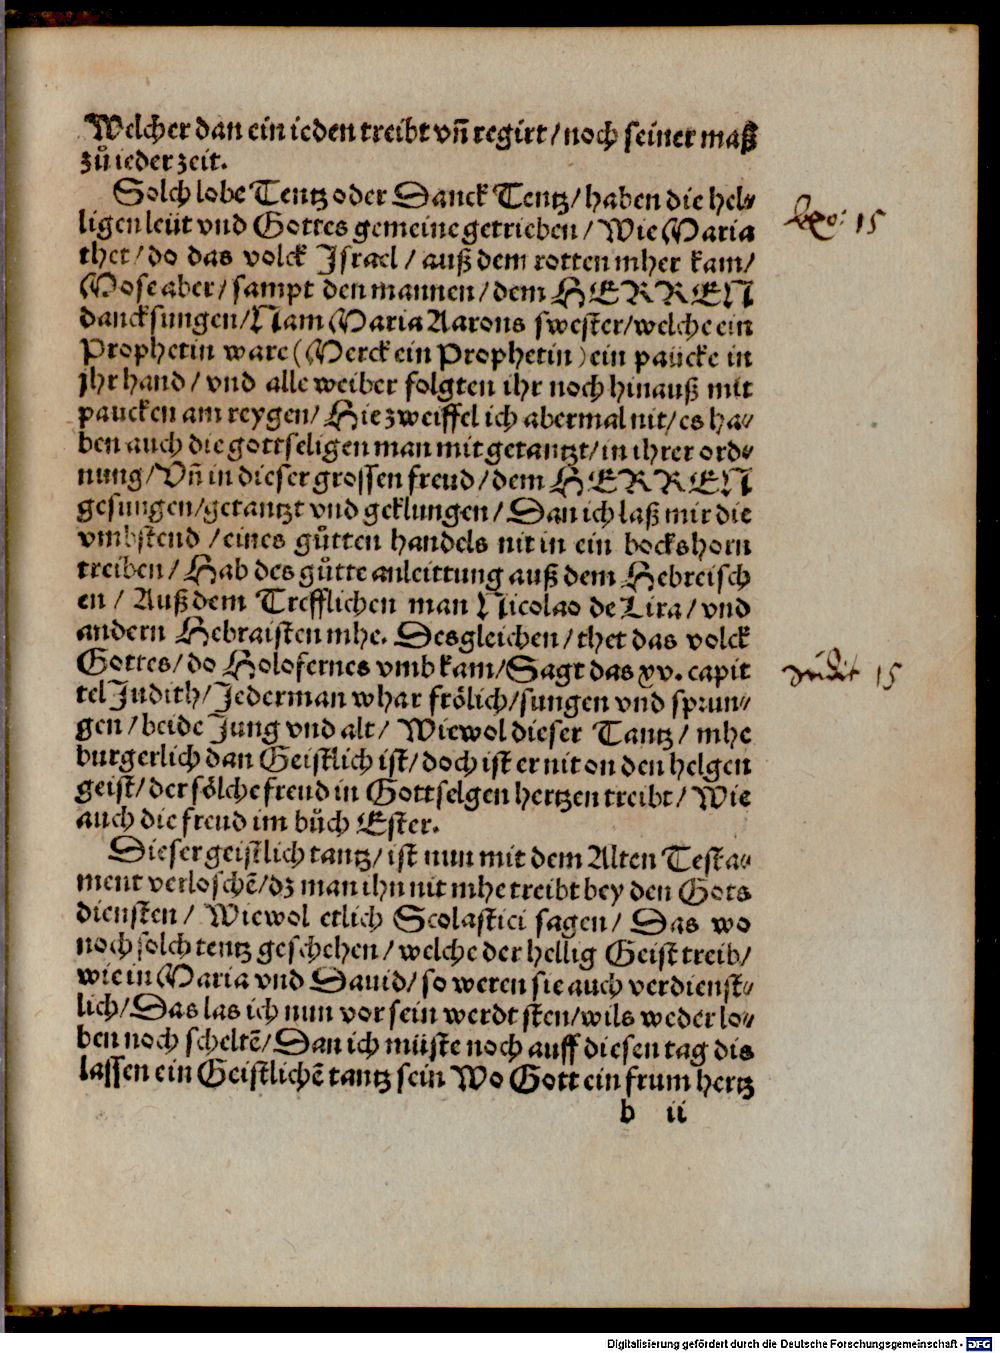 Welcher dan ein ieden treibt vñ regirt/ noch seiner maß
zů ieder zeit.
Solch lobe Tentz oder Danck Tentz/ haben die hel⸗
ligen leüt vnd Gottes gemeine getrieben/ Wie Maria
thet/ do das volck Israel/ auß dem rotten mher kam/
Mose aber/ sampt den mannen/ dem HERREN
dancksungen/ Nam Maria Aarons swester/ welche ein
Prophetin ware (Merck ein Prophetin) ein paucke in
jhr hand/ vnd alle weiber folgten ihr noch hinauß mit
paucken am reygen/ Hie zweiffel ich abermal nit/ es ha⸗
ben auch die gottseligen man mit getantzt/ in ihrer ord⸗
nung/ Vñ in dieser grossen freud/ dem HERREN
gesungen/ getantzt vnd geklungen/ Dan ich laß mir die
vmbstend/ eines gůtten handels nit in ein bockshorn
treiben/ Hab des gůtte anleittung auß dem Hebreisch
en/ Auß dem Trefflichen man Nicolao de Lira/ vnd
andern Hebraisten mhe. Desgleichen/ thet das volck
Gottes/ do Holofernes vmb kam/ Sagt das xv. capit
tel Judith/ Jederman whar frölich/ sungen vnd sprun⸗
gen/ beide Jung vnd alt/ Wiewol dieser Tantz/ mhe
burgerlich dan Geistlich ist/ doch ist er nit on den helgen
geist/ der sölche freud in Gottselgen hertzen treibt/ Wie
auch die freud im bůch Ester.
Dieser geistlich tantz/ ist nun mit dem Alten Testa⸗
ment verloschẽ/ dz man ihn nit mhe treibt bey den Gots
diensten/ Wiewol etlich Scolastici sagen/ Das wo
noch solch tentz geschehen/ welche der hellig Geist treib/
wie in Maria vnd Dauid/ so weren sie auch verdienst⸗
lich/ Das las ich nun vor sein werdt sten/ wils weder lo⸗
ben noch scheltẽ/ Dan ich müste noch auff diesen tag dis
lassen ein Geistlichẽ tantz sein Wo Gott ein frum hertz
b ii
Exo: 15
Judit 15
Digitalisierung gefördert durch die Deutsche Forschungsgemeinschaft - DFG